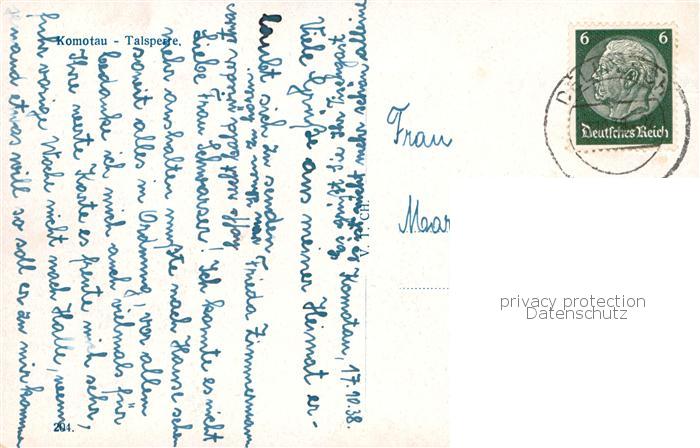 Komotau - Talsperre.
Komotau, 17.10.38.
Viele Grüße aus meiner Heimat er-
laubt sich zu senden
Frieda Zimmermann
Liebe Frau Schwarser! Ich konnte es nicht
mehr aushalten mußte nach Hause sehn
soweit alles in Ordnung, vor allen
bedanke ich mich auch vielmals für
Ihre neuste Karte es freute mich sehr,
fuhr vorige Woche nicht nach Halle, wenn
jemand etwas will so soll er zu mir kommen
und
hoffe
bald
von
zu hören
204.
V. I. CH.
Frau
Maar
6 6
Deutsches Reich
privacy protection
Datenschutz